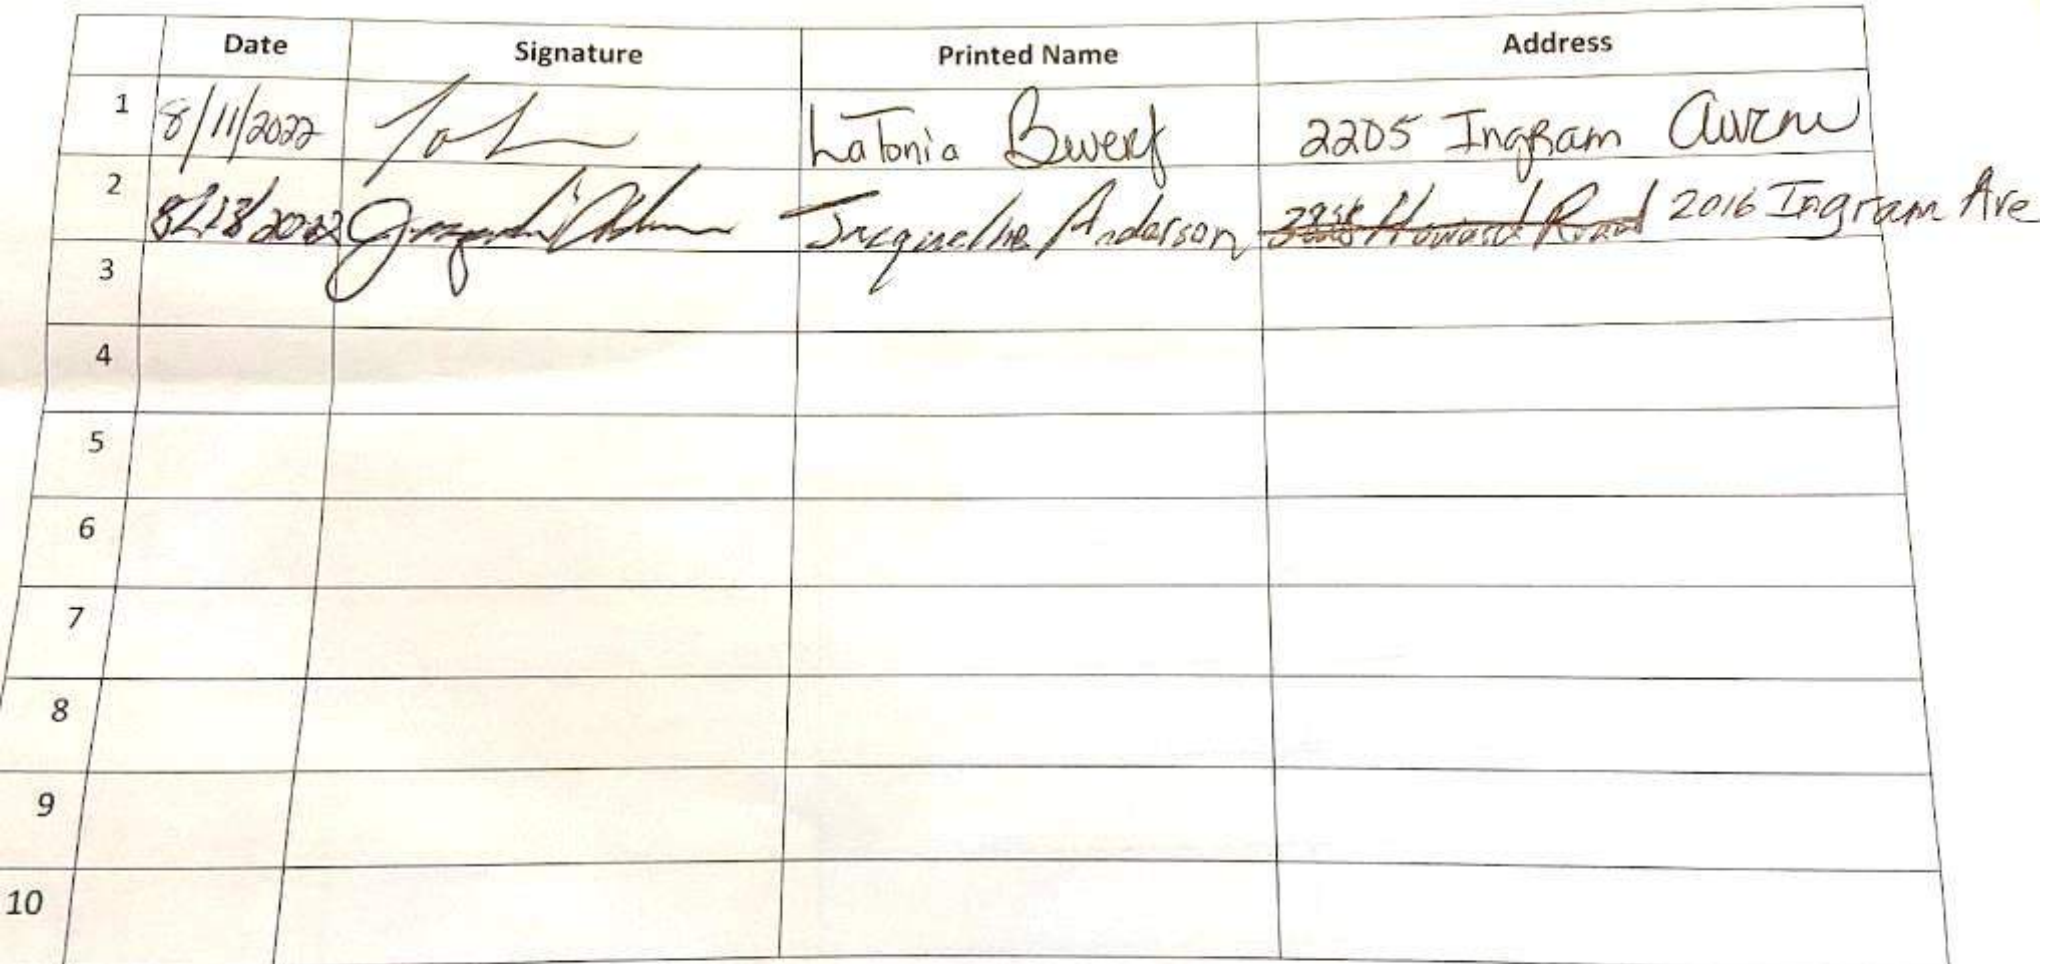 Date Signature Printed Name Address
1 8/11/2022 LaTonia 2205 Ingram
2 8/13/2022 Jacqueline Anderson Howard Road 2016 Ingram Ave
3
4
5
6
7
8
9
10